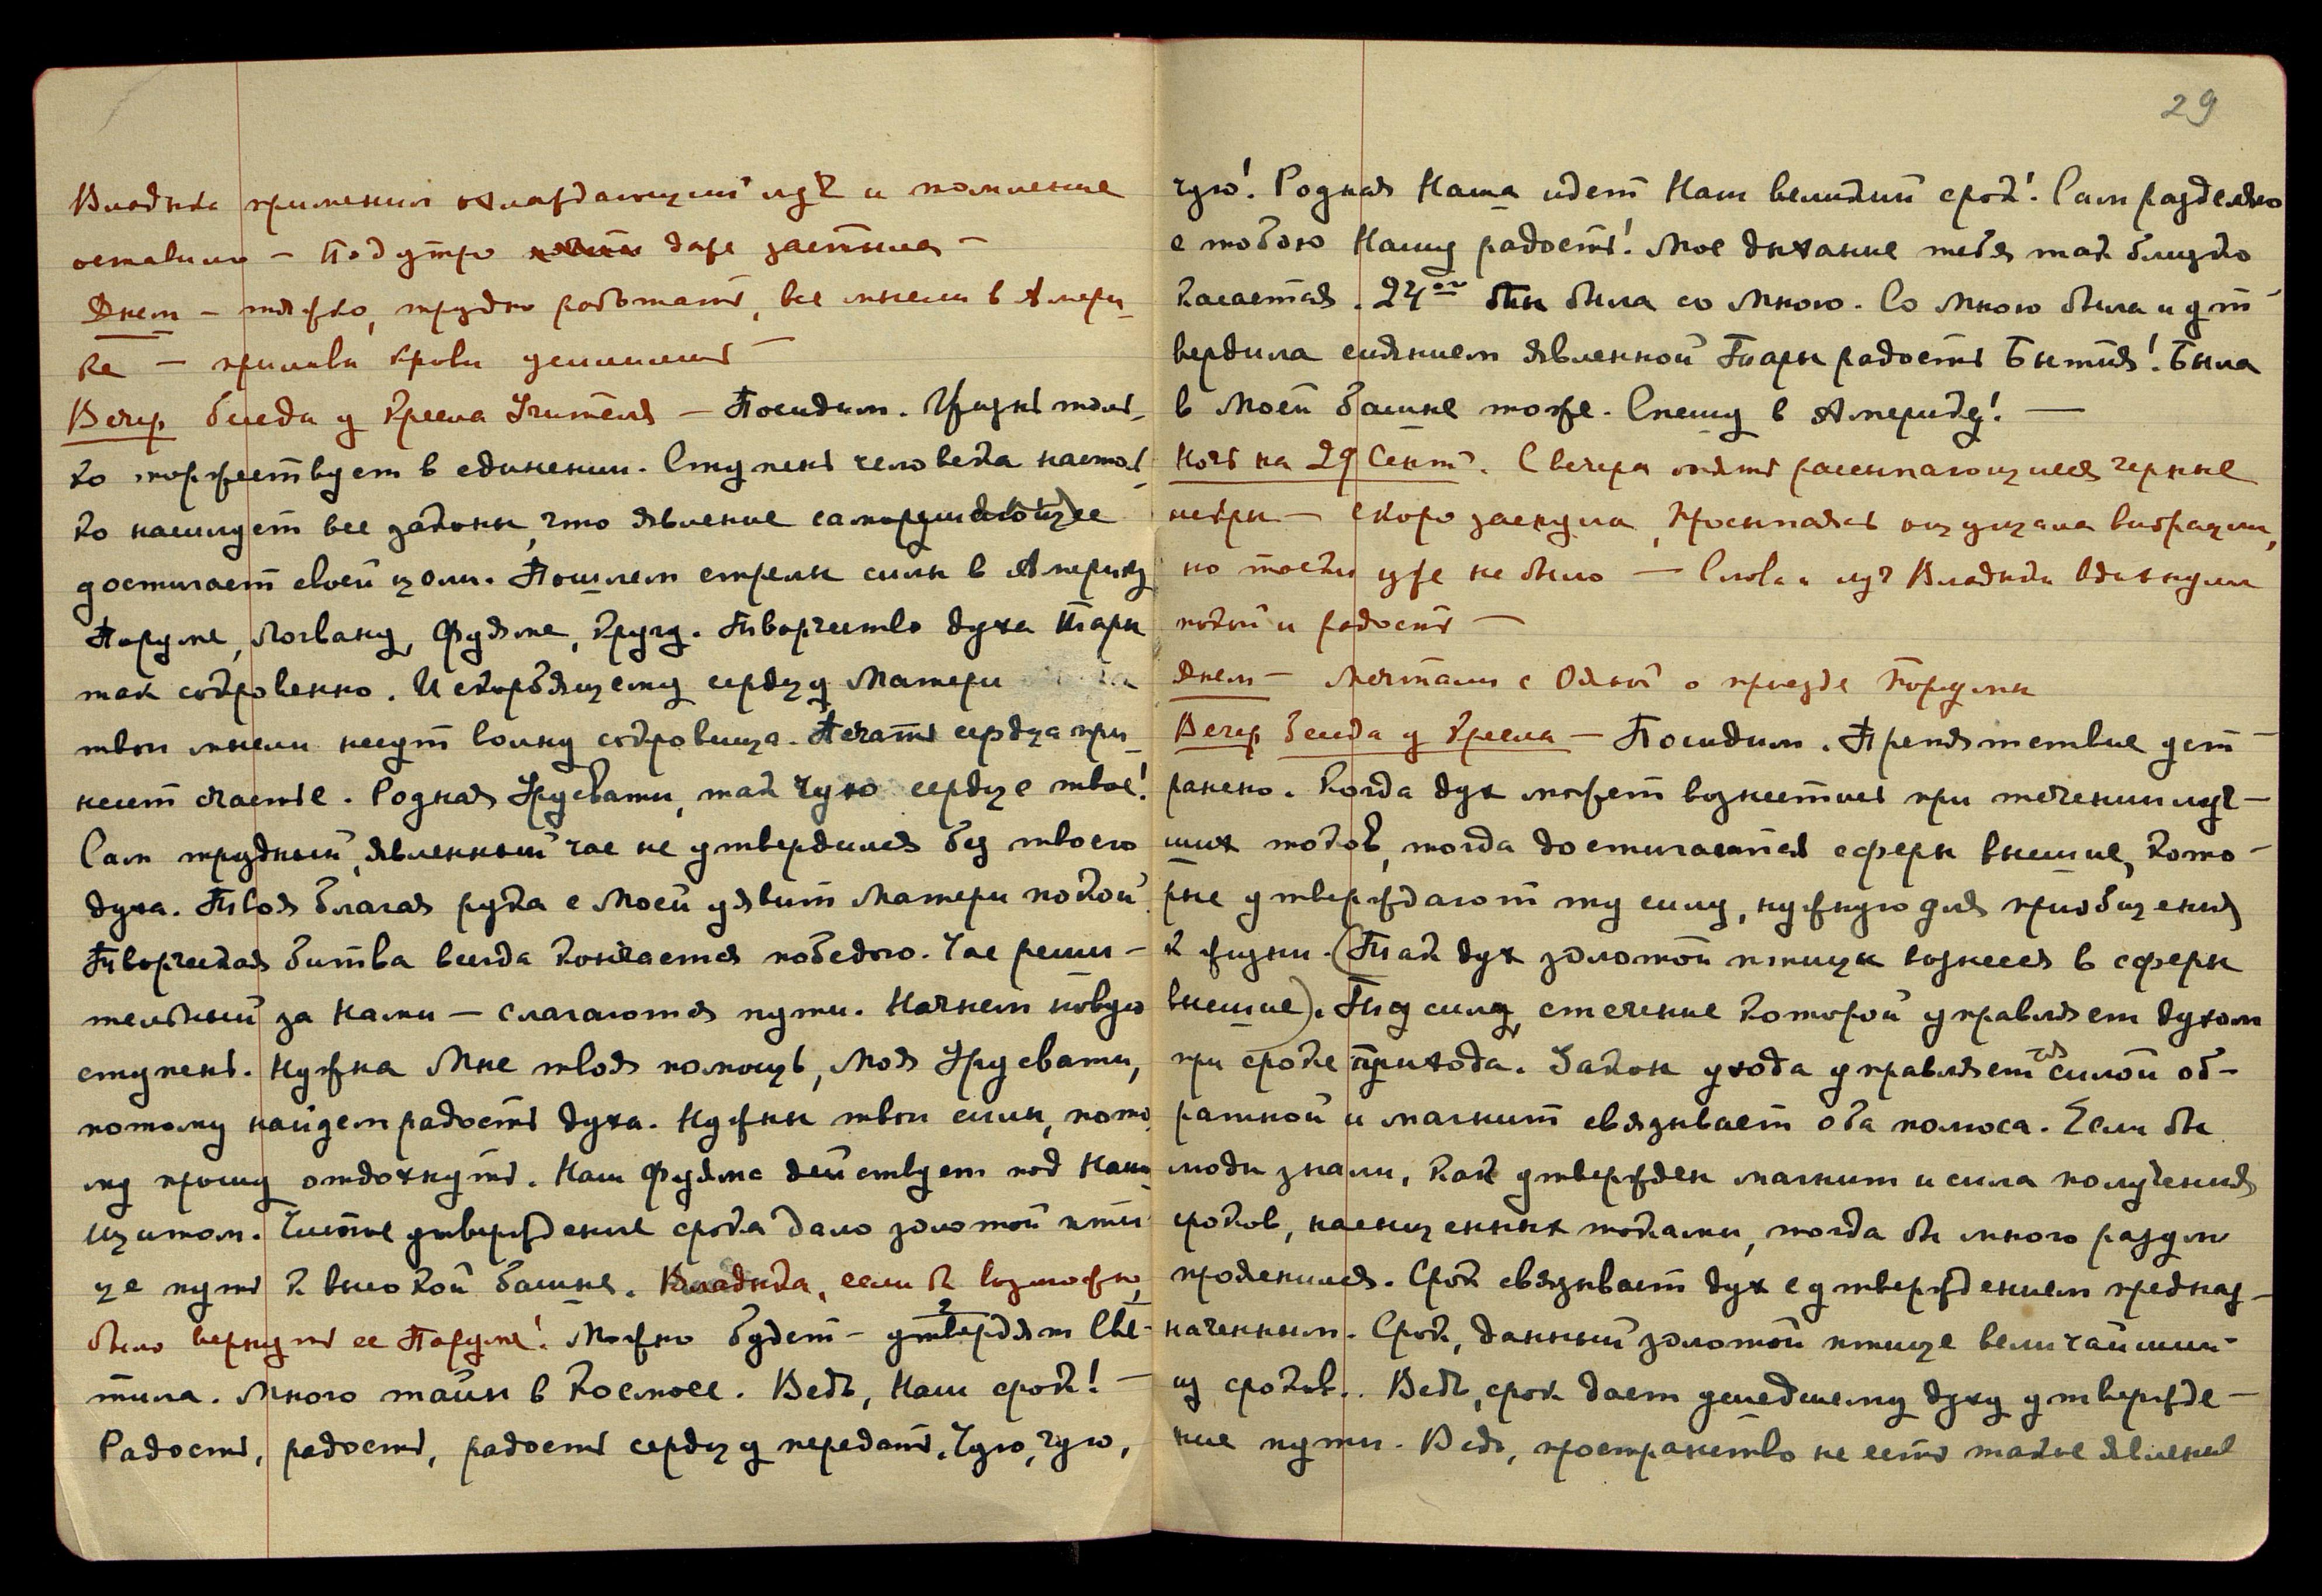 Владыка применил охлаждающий луч и томление
оставило — Под утро даже застыла —
Днем — тяжко, трудно работать, все мысли в Амери-
ке — приливы крови усилились —
Вечер беседы у Кресла Учителя — Посидим. Жизнь толь-
ко торжествует в единении. Ступень человека настоль-
ко насилует все законы, что явление саморушающее
достигает своей цели. Пошлем стрелы силы в Америку
Поруме, Логвану, Фуяме, Кругу. Творчество духа Тары
так сокровенно. И скорбящему сердцу Матери
твои мысли несут волну сокровища. Печать сердца при-
несет счастье. Родная Урусвати, так чую сердце твое!
Сам трудный, явленный час не утвердился без твоего
духа. Твоя благая рука с Моей уявит Матери покой.
Творческая битва всегда кончается победою. Час реши-
тельный за Нами — слагаются пути. Начнем новую
ступень. Нужна Мне твоя помощь, Моя Урусвати,
потому найдем радость духа. Нужны твои силы, пото
му прошу отдохнуть. Наш Фуяма действует под Наш
щитом. Чистое утверждение срока дало золотой пти
це путь к высокой башне. Владыка, если б возможно
было вернуть ее Поруме! Можно будет — утвердят Све-
тила. Много тайн в Космосе. Ведь, Наш срок! —
Радость, радость, радость сердцу передать. Чую, чую,
29
чую! Родная Наша идет Наш великий срок! Сам разделяю
с тобою Нашу радость! Мое дыхание тебя так близко
касается. 24ого бы была со Мною. Со Мною была и ут-
вердила сиянием явленной Тары радость Бытия! Была
в Моей башне тоже. Спешу в Америку! —
Ночь на 29 Сент. С вечера опять рассыпающиеся черные
искры — скоро заснула, Просыпаясь ощущала вибрации,
но тоски уже не было — Слова и луч Владыки вдохнули
покой и радость —
Днем — мечтали с Ояной о приезде Порумы
Вечер беседа у Кресла — Посидим. Препятствие уст-
ранено. Когда дух может вознестись при течении луч-
ших токов, тогда достигаются сферы высшие, кото-
рые утверждают ту силу, нужную для приобщения
к жизни. (Так дух золотой птицы вознесся в сферы
высшие). Ту силу, стечение которой управляет духом
при сроке прихода. Закон ухода управляется силой об-
ратной и магнит связывает оба полюса. Если бы
люди знали, как утвержден магнит и сила получения
сроков, насыщенных токами, тогда бы много разум
прояснился. Срок связывает дух с утверждением предназ-
наченным. Срок, данный золотой птице величайший
из сроков. Ведь, срок дает ушедшему духу утвержде-
ние пути. Ведь, пространство не есть такое явление